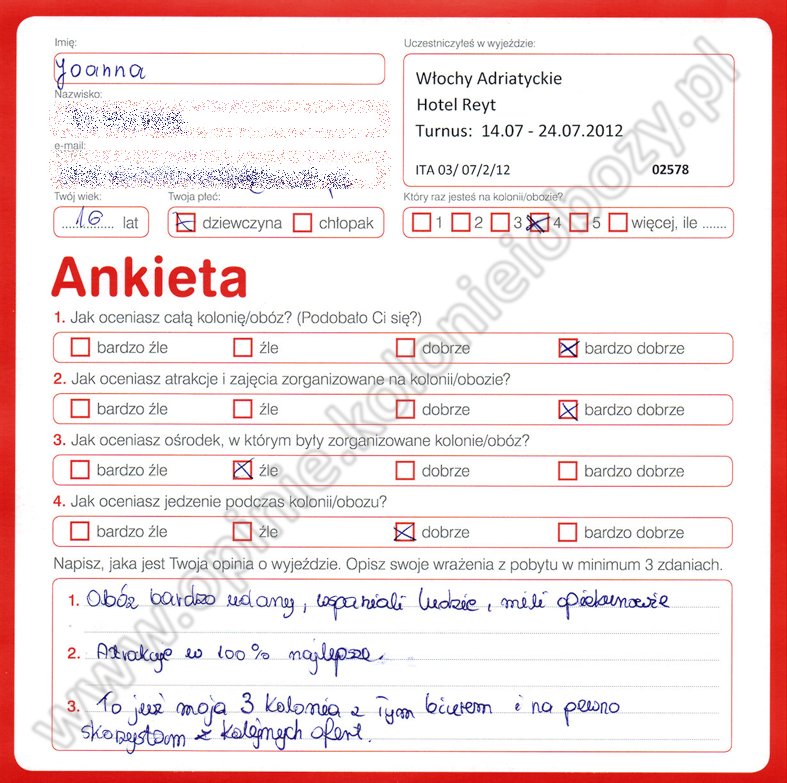 Imię:
Joanna
Nazwisko:
e-mail:
Twój wiek:
16 lat
Twoja płeć:
dziewczyna chłopak
Uczestniczyłeś w wyjeździe:
Włochy Adriatyckie
Hotel Reyt
Turnus: 14.07 - 24.07.2012
ITA 03/ 07/2/12 02578
Który raz jesteś na kolonii/obozie?
1 2 3 4 5 więcej, ile .......
Ankieta
1. Jak oceniasz całą kolonię/obóz? (Podobało Ci się?)
bardzo źle źle dobrze bardzo dobrze
2. Jak oceniasz atrakcje i zajęcia zorganizowane na kolonii/obozie?
bardzo źle źle dobrze bardzo dobrze
3. Jak oceniasz ośrodek, w którym były zorganizowane kolonie/obóz?
bardzo źle źle dobrze bardzo dobrze
4. Jak oceniasz jedzenie podczas kolonii/obozu?
bardzo źle źle dobrze bardzo dobrze
Napisz, jaka jest Twoja opinia o wyjeździe. Opisz swoje wrażenia z pobytu w minimum 3 zdaniach.
1. Obóz bardzo udany, wspaniali ludzie, mili opiekunowie
2. Atrakcje w 100% najlepsze.
3. To już moja 3 kolonia z Tym biurem i na pewno
skorzystam z kolejnych ofert.
www.opinie.kolonieiobozy.pl